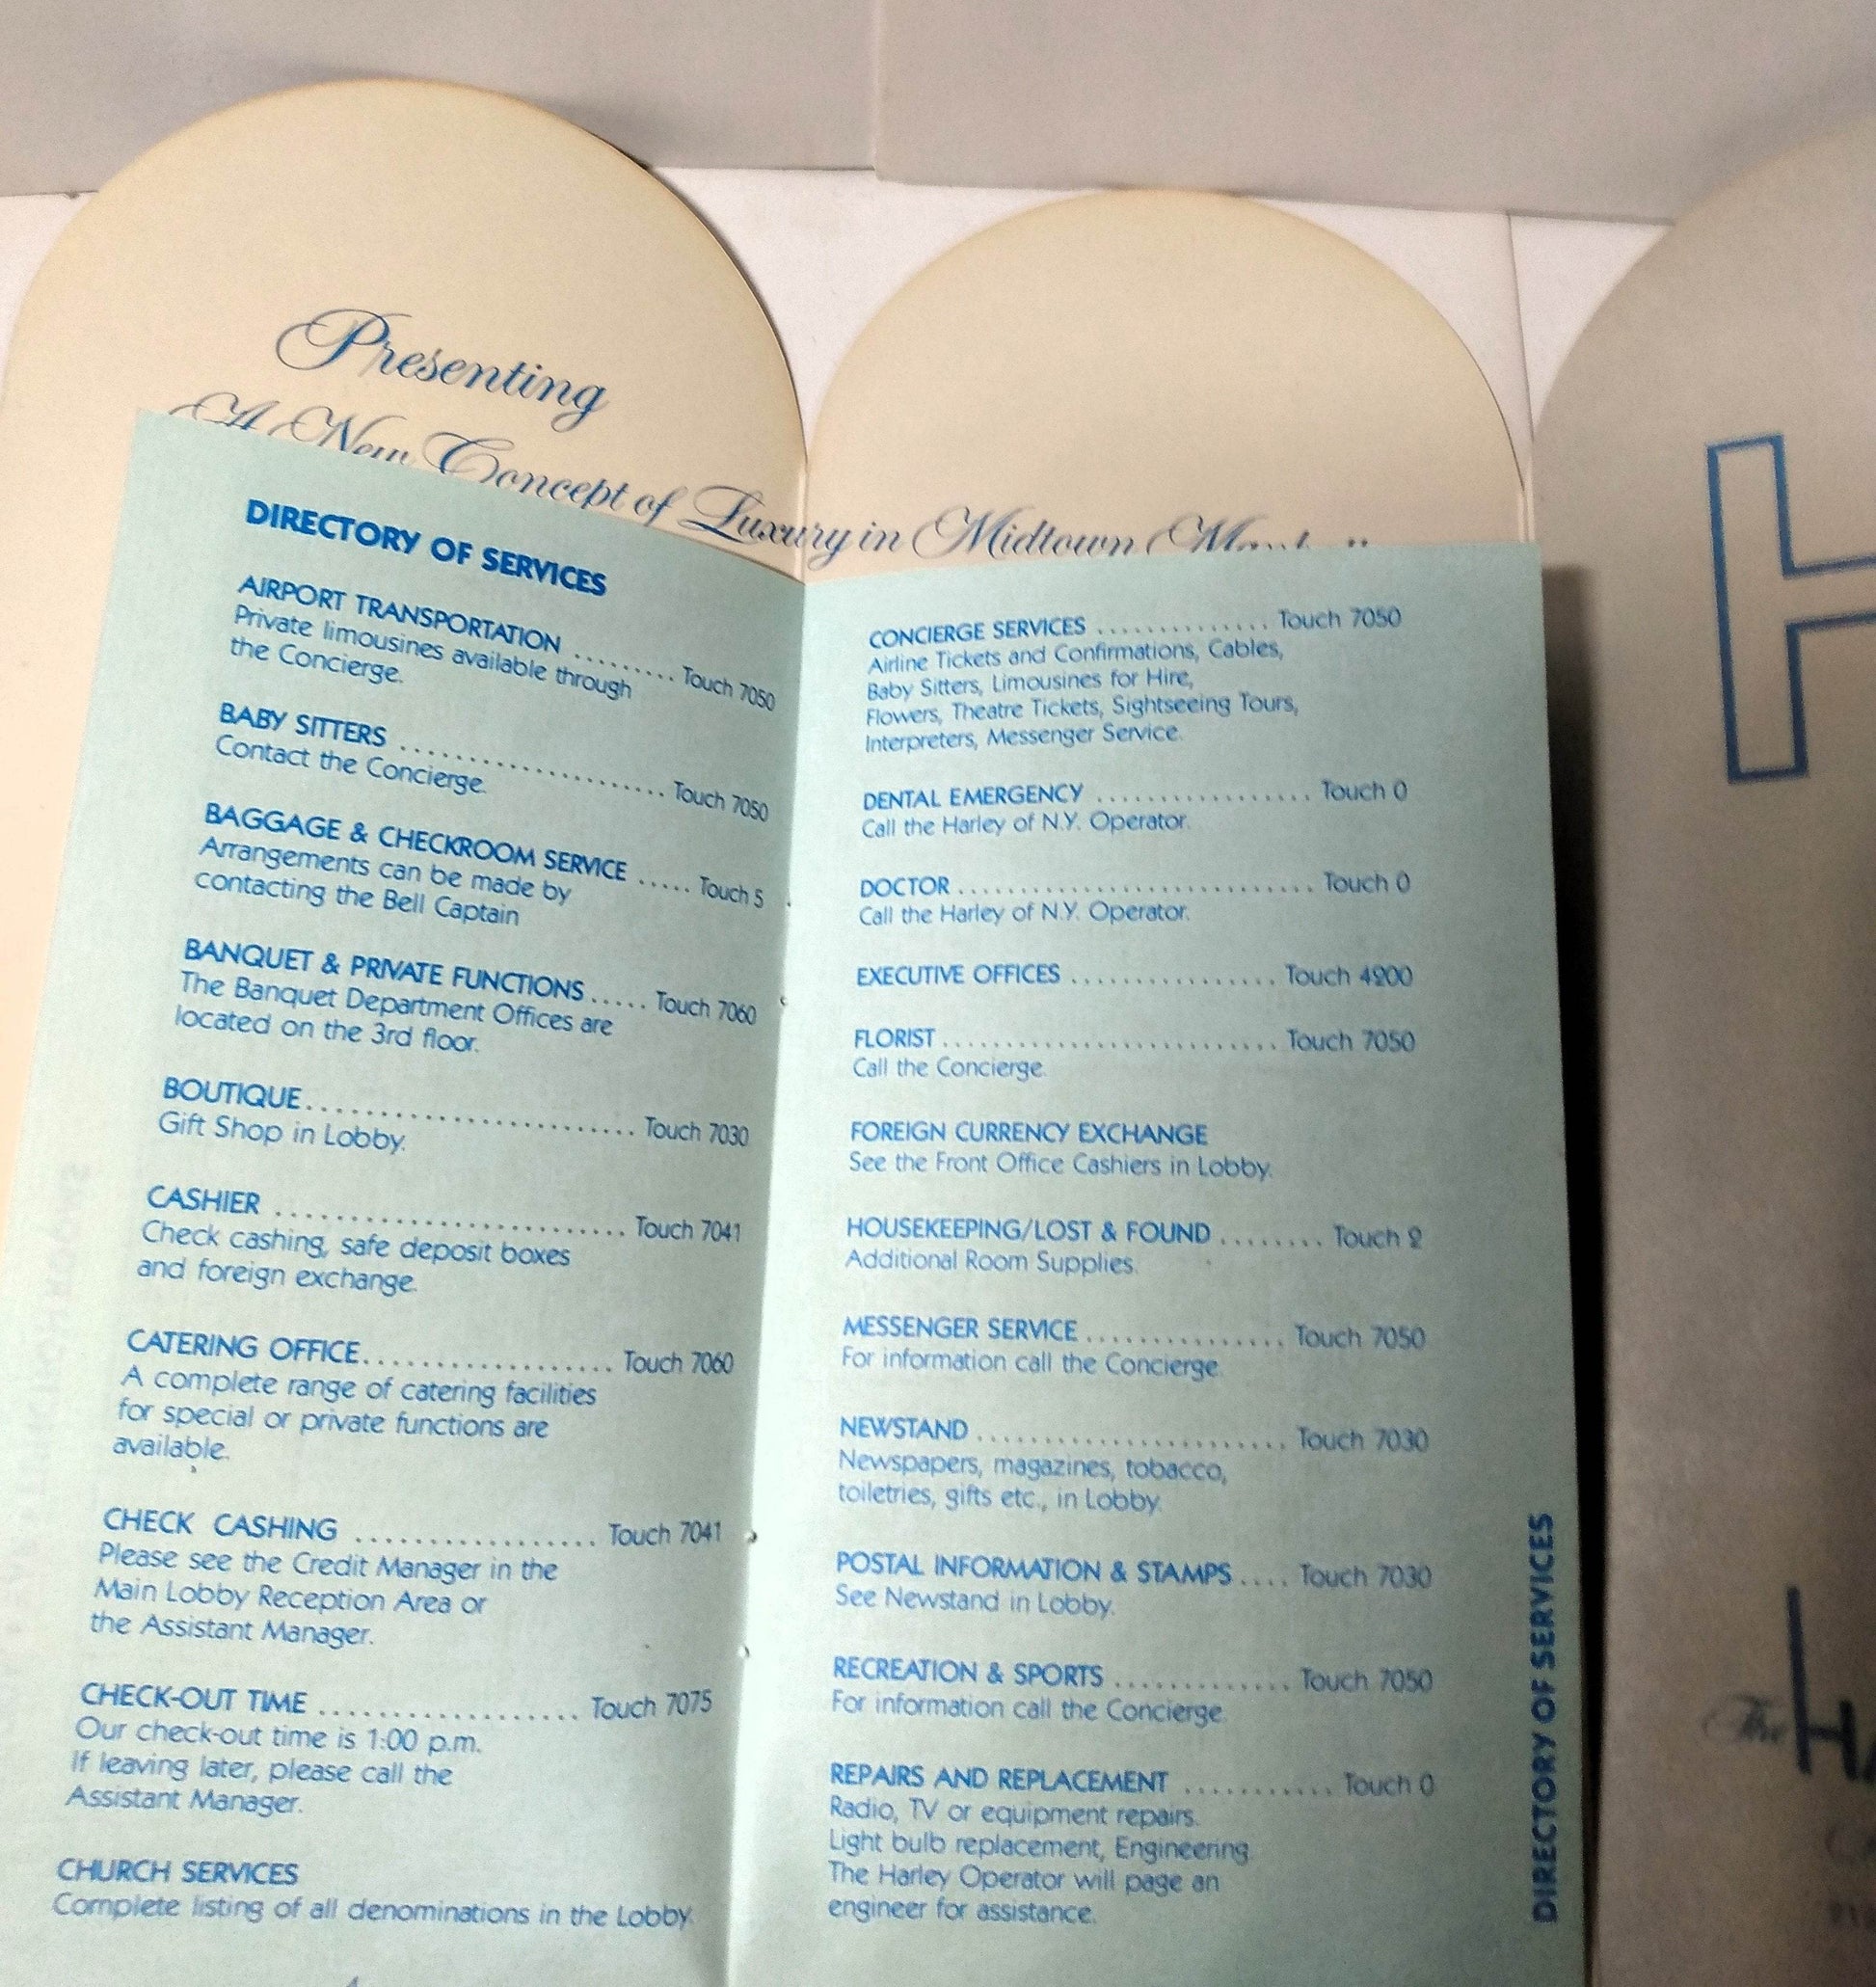 Presenting
A New Concept of Luxury in Midtown
DIRECTORY OF SERVICES
AIRPORT TRANSPORTATION ......... Touch 7050
Private limousines available through
the Concierge.
BABY SITTERS ..................... Touch 7050
Contact the Concierge.
BAGGAGE & CHECKROOM SERVICE ..... Touch 5
Arrangements can be made by
contacting the Bell Captain
BANQUET & PRIVATE FUNCTIONS ..... Touch 7060
The Banquet Department Offices are
located on the 3rd floor.
BOUTIQUE ........................ Touch 7030
Gift Shop in Lobby.
CASHIER .......................... Touch 7041
Check cashing, safe deposit boxes
and foreign exchange.
CATERING OFFICE ................... Touch 7060
A complete range of catering facilities
for special or private functions are
available.
CHECK CASHING ................. Touch 7041
Please see the Credit Manager in the
Main Lobby Reception Area or
the Assistant Manager.
CHECK-OUT TIME ................... Touch 7075
Our check-out time is 1:00 p.m.
If leaving later, please call the
Assistant Manager.
CHURCH SERVICES
Complete listing of all denominations in the Lobby.
CONCIERGE SERVICES .............. Touch 7050
Airline Tickets and Confirmations, Cables,
Baby Sitters, Limousines for Hire,
Flowers, Theatre Tickets, Sightseeing Tours,
Interpreters, Messenger Service.
DENTAL EMERGENCY ................. Touch 0
Call the Harley of N.Y. Operator.
DOCTOR ............................ Touch 0
Call the Harley of N.Y. Operator.
EXECUTIVE OFFICES ................ Touch 4200
FLORIST ........................... Touch 7050
Call the Concierge.
FOREIGN CURRENCY EXCHANGE
See the Front Office Cashiers in Lobby.
HOUSEKEEPING/LOST & FOUND ........ Touch 2
Additional Room Supplies.
MESSENGER SERVICE ................ Touch 7050
For information call the Concierge.
NEWSTAND ........................ Touch 7030
Newspapers, magazines, tobacco,
toiletries, gifts etc., in Lobby.
POSTAL INFORMATION & STAMPS .... Touch 7030
See Newstand in Lobby.
RECREATION & SPORTS .............. Touch 7050
For information call the Concierge.
REPAIRS AND REPLACEMENT ............ Touch 0
Radio, TV or equipment repairs.
Light bulb replacement, Engineering.
The Harley Operator will page an
engineer for assistance.
DIRECTORY OF SERVICES
H
The